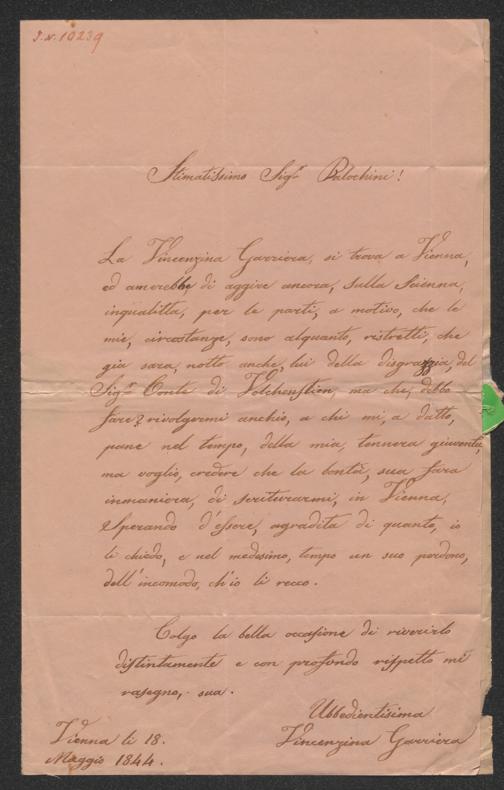 I.N. 10239
Stimatissimo Sigr Balochini!
La Vincenzina Garriera, si trova a Vienna,
ed amerebbe di aggire ancora, sulla Scienna,
inqualitta, per le parti, a motivo, che le
mie, circostanze, sono alquanto, ristretti, che
gia sara, notto anche, lui della disgrazzia, del
Sigr Conte di Volchenstien, ma che, debbo
fare? rivolgermi anchio, a chi mi, a datto,
pane nel tempo, della mia, tennera giuventù,
ma voglio, credere che la bontà, sua fara
inmaniera, di scriturarmi, in Vienna,
Sperando d'essere, agradita di quanto, io
li chiedo, e nel medesimo, tempo un suo perdono,
dell'incomodo, ch'io li reco.
Colgo la bella occasione di riverirlo
distintamente e con profondo rispetto mi
rasegno, sua.
Ubbedientisima
Vincenzina Garriera
Vienna li 18.
Maggio 1844.